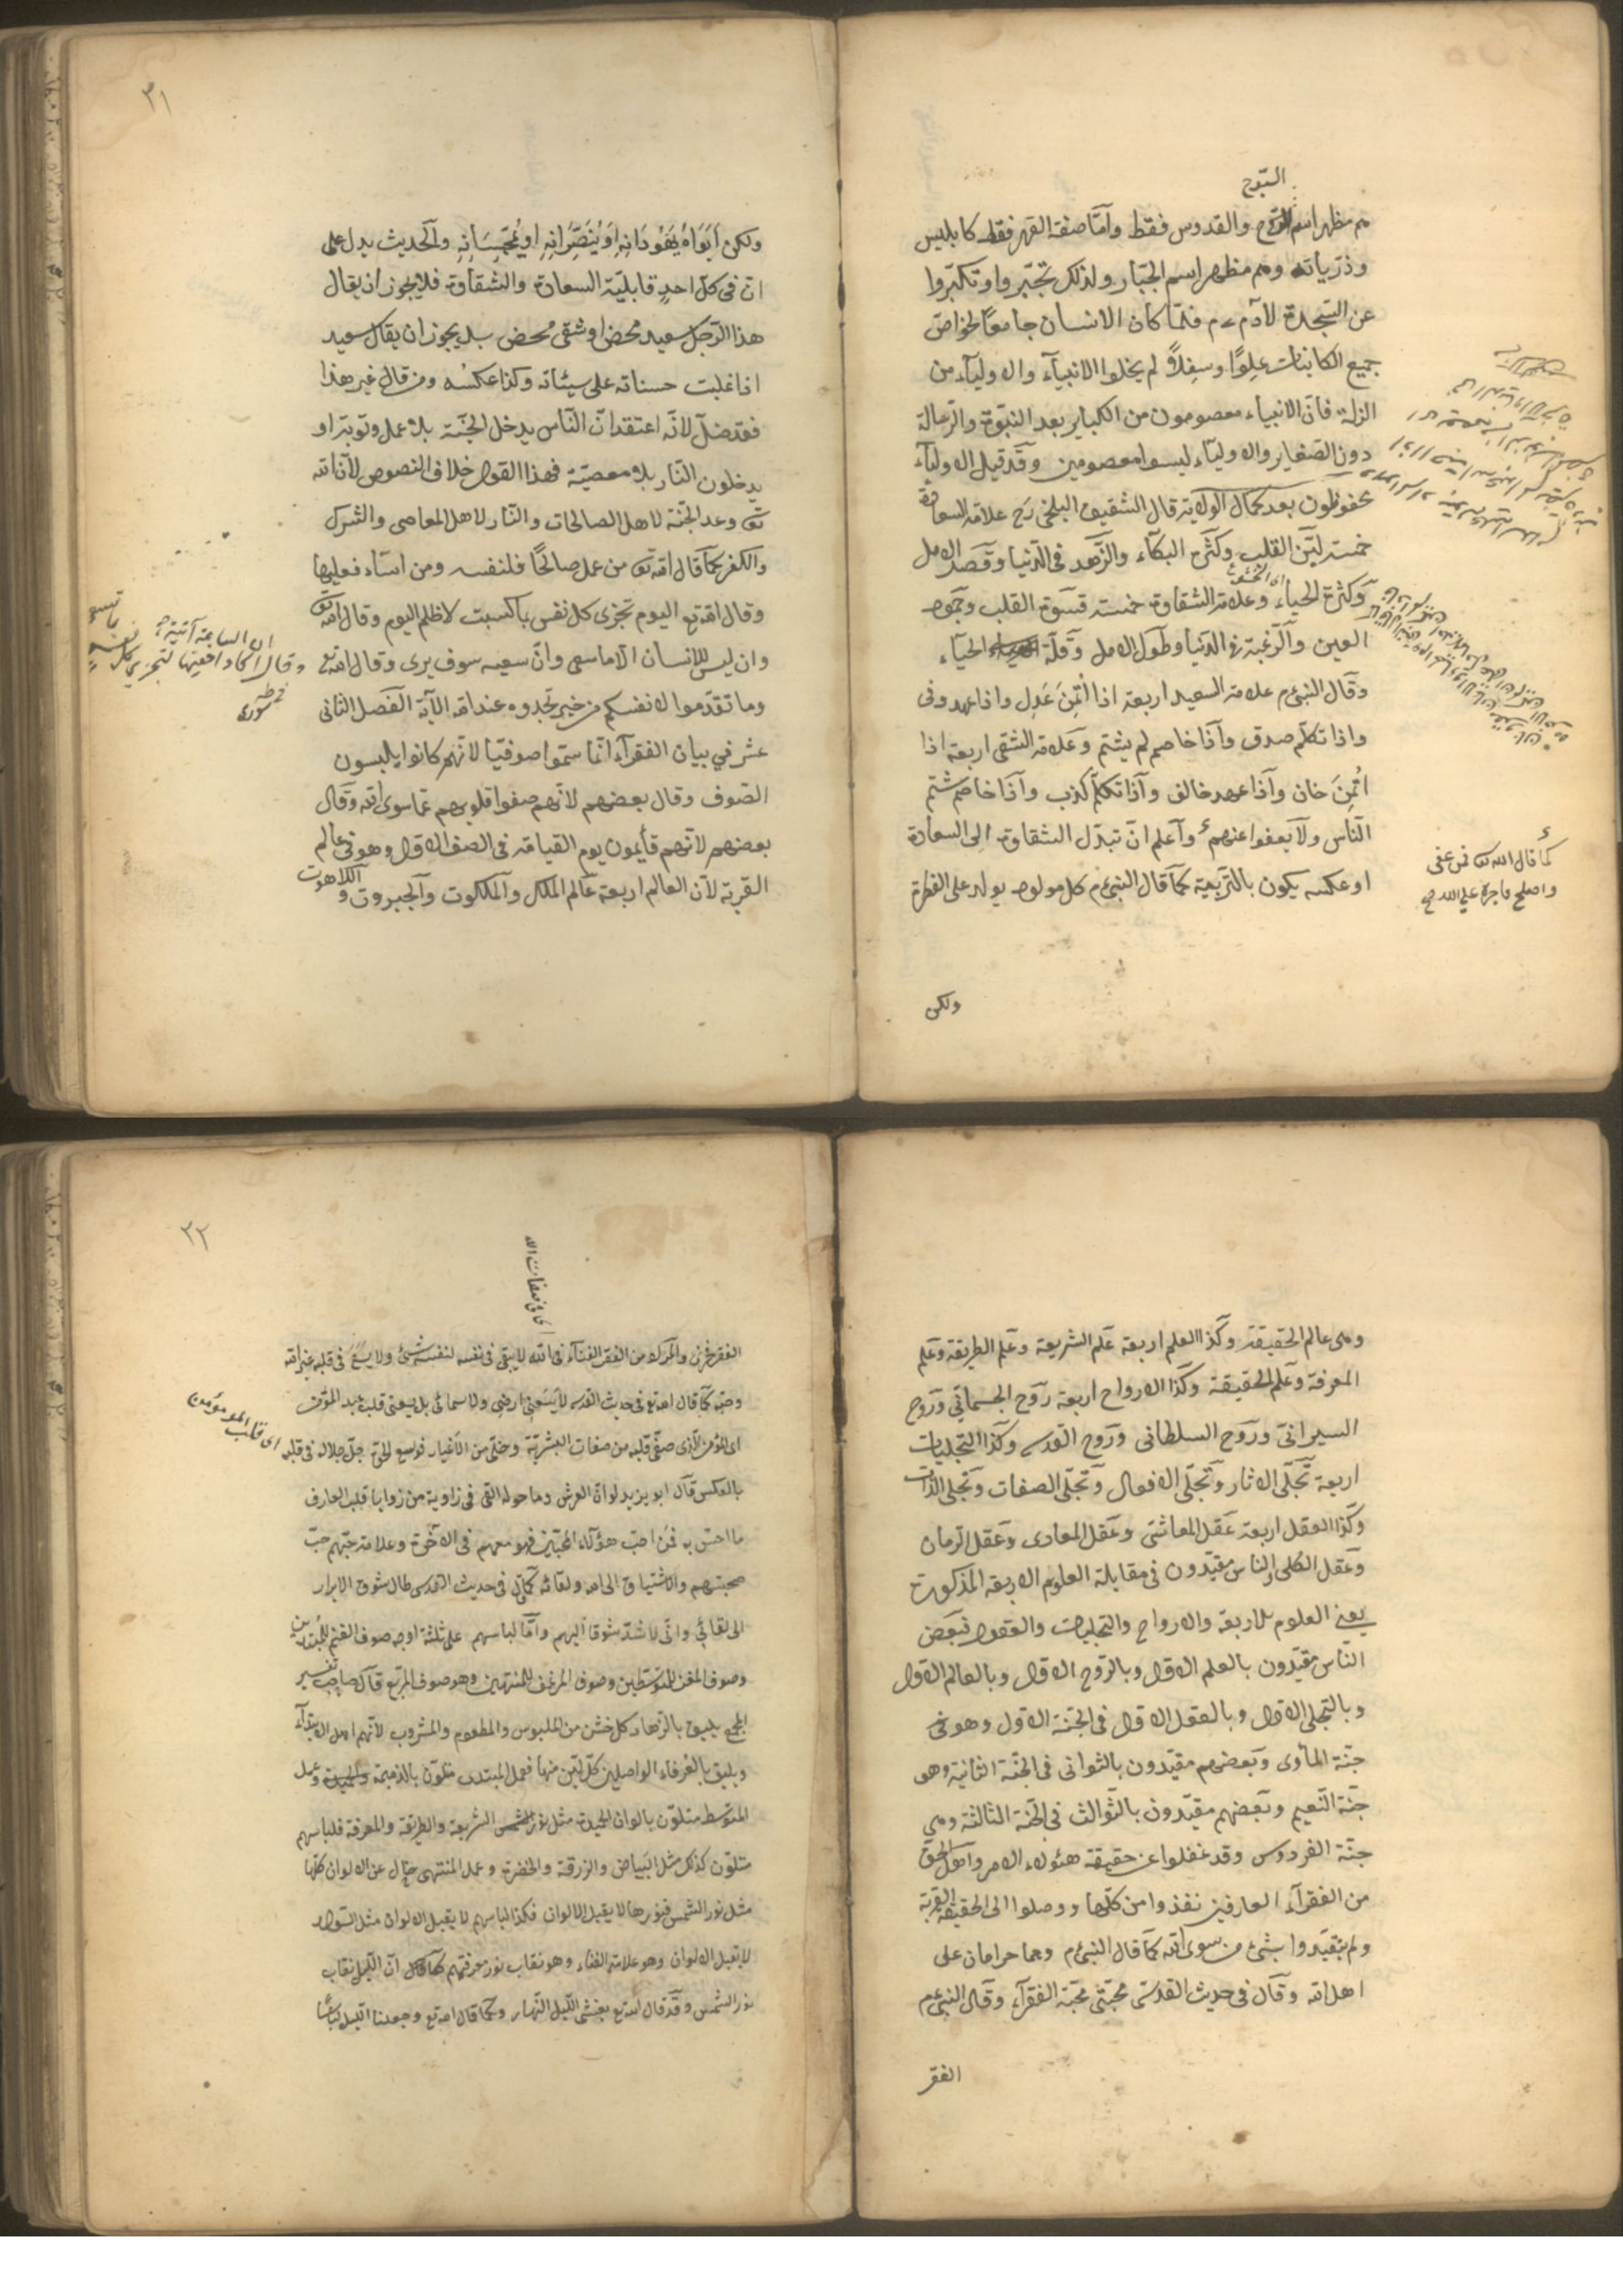 السبوح
هم مظهر اسم السبوح والقدوس فقط وأمّا صفة القهر فقط كابليس
وذرّياته وهم مظهر اسم الجبّار ولذلك تجبّروا وتكبّروا
عن السّجدة لآدم ع م فلمّا كان الانسان جامعًا لخواصّ
جميع الكاينات علوًّا وسفلاً لم يخلوا الانبيآء والاوليآء من
الزلة فانّ الانبياء معصومون من الكباير بعد النبوّة والرّسالة
دون الصّغاير والاوليآء ليسوا معصومين وقد قيل الاوليآء
محفوظون بعد كمال الولاية قال الشقيق البلخى رح علامة السعادة
خمسة ليّن القلب وكثرة البكآء والزّهد فى الدّنيا وقصر الامل
وكثرة الحياء وعلامة الشقاوة خمسة قسوة القلب وجمود
العين والرّغبة فى الدّنيا وطول الامل وقلّة الحيآء
وقال النبى ع م علامة السعيد اربعة اذا ائتُمِنَ عَدَلَ واذا عهد وفى
واذا تكلّم صدق وآذا خاصم لم يشتم وعلامة الشقى اربعة اذا
اُتُمِنَ خان وآذا عهد خالف وآذا تكلّم كذب وآذا خاصم شتم
النّاس ولا يعفوا عنهم وآعلم انّ تبدّل الشقاوة الى السعادة
او عكسه يكون بالتربية كما قال النبى ع م كل مولود يولد على الفطرة
كما قال الله تع فمن عفى
واصلح فاجره على الله
ولكن
٢١
ولكن أبَوَاهُ يُهَوِّدَانِهِ اَوْ يُنَصِّرَانِهِ اَوْ يُمَجِّسَانِهِ والحديث يدل على
انّ فى كلّ احدٍ قابليّة السعادة والشقاوة فلا يجوز ان يقال
هذا الرّجل سعيد محض او شقى محض بل يجوز ان يقال سعيد
اذا غلبت حسناته على سيئاته وكذا عكسه ومن قال غير هذا
فقد ضلّ لانّه اعتقد انّ النّاس يدخل الجنّة بلا عمل وتوبة او
يدخلون النّار بلا معصيّة فهذا القول خلاف النصوص لانّ الله
تع وعد الجنّة لاهل الصالحات والنّار لاهل المعاصى والشرك
والكفر كما قال الله تع من عمل صالحًا فلنفسه ومن اسآء فعليها
وقال الله تع اليوم تجزى كل نفس بما كسبت لا ظلم اليوم وقال الله تع
وان ليس للانسان الّا ما سعى وانّ سعيه سوف يرى وقال الله تع
وما تقدّموا لانفسكم من خير تجدوه عند الله الآية الفصل الثانى
عشر في بيان الفقرآء انّما سمّوا صوفيًا لانّهم كانوا يلبسون
الصّوف وقال بعضهم لانّهم صفوا قلوبهم عمّا سوى الله وقال
بعضهم لانّهم قايمون يوم القيامة فى الصف الاوّل وهو فى عالم
القربة لانّ العالم اربعة عالم الملك والملكوت والجبروت واللاهوت
ان الساعة آتية
وقال اكاد اخفيها لتجزى كل نفس بما تسعى
وهى عالم الحقيقة وكذا العلم اربعة علم الشريعة وعلم الطريقة وعلم
المعرفة وعلم الحقيقة وكذا الارواح اربعة رَوح الجسمانّي ورَوح
السيرانىّ ورَوح السلطانى ورَوح القدسى وكذا التجليات
اربعة تجلّى الاثار وتجلّى الافعال وتجلّى الصفات وتجلّى الذّات
وكذا العقل اربعة عقل المعاشى وعقل المعادى وعقل الزمان
وعقل الكلى والناس مقيّدون فى مقابلة العلوم الاربعة المذكورة
يعنى العلوم الاربعة والارواح والتجليات والعقول فبعض
النّاس مقيّدون بالعلم الاوّل وبالرّوح الاوّل وبالعالم الاوّل
وبالتجلى الاوّل وبالعقل الاوّل فى الجنّة الاوّل وهو فى
جنّة المأوى وبعضهم مقيّدون بالثّوانى فى الجنّة الثانية وهو
جنّة النّعيم وبعضهم مقيّدون بالثّوالث فى الجنّة الثالثة وهى
جنّة الفردوس وقد غفلوا عن حقيقة هؤلاء الامر واهل الحقّ
من الفقرآء العارفين نفذوا من كلّها ووصلوا الى الحقيقة القربة
ولم يتقيّدوا بشئ من سوى الله كما قال النبى ع م وهما حرامان على
اهل الله وقال فى حديث القدسّى محبّتى محبّة الفقرآء وقال النبى ع م
الفقر
٢٢
اى فى صفات الله
الفقر فخرى والمراد من الفقر الفنآء فى الله لا يبقى فى نفسه لنفسه شئ ولا يَسَعُ فى قلبه غير الله
وحبّه كما قال الله تع فى حديث القدسى لا يَسَعُنى ارضى ولا سمائى بل يسعنى قلب عبد المؤمن
اى المؤمن الّذى صفّى قلبه من صفات البشريّة وخلّى من الأغيار فوسع الحقّ جلّ جلاله فى قلبه
اى قلب المؤمن
بالعكس قال ابو يزيد لو انّ العرش وما حوله القى فى زاوية من زوايا قلب العارف
ما احسّ به فمن احبّ هؤلآء المحبّين فهو معهم فى الآخرة وعلامة حبّهم حبّ
صحبتهم والاشتياق الى الله ولقائه كما قال فى حديث القدسى طال شوق الابرار
الى لقائي وانّى لاشدّ شوقا اليهم وامّا لباسهم على ثلثة اوجه صوف الغنم للمبتدين
وصوف المعز للمتوسّطين وصوف المرعز للمنتهين وهو صوف المربّع قال صاحب تفسير
المجمع يليق بالزّهاد كل خشن من الملبوس والمطعوم والمشروب لانّهم اهل الابتدآء
ويليق بالعُرفاء الواصلين كلّ ليّن منها فعمل المبتدى متلوّن بالذميمة والحميدة وعمل
المتوسّط متلوّن بالوان الحميدة مثل نور الشريعة والطريقة والمعرفة فلباسهم
متلوّن كذلك مثل البَياض والزرقة والخضرة وعمل المنتهى خالٍ عن الالوان كلّها
مثل نور الشّمس فنورها لا يقبل الالوان فكذا لباسهم لا يقبل الالوان مثل السّواد
لا يقبل الالوان وهو علامة الفناء وهو نقاب نور معرفتهم كما انّ اللّيل نقاب
نور الشّمس وقد قال الله تع يغشى اللّيل النّهار وكما قال الله تع وجعلنا اللّيل لباسًا